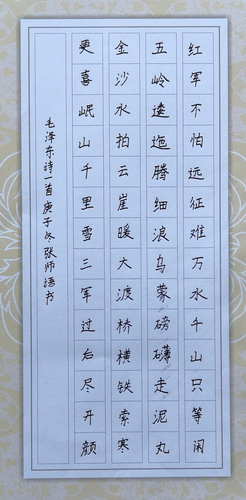 红军不怕远征难万水千山只等闲
五岭逶迤腾细浪乌蒙磅礴走泥丸
金沙水拍云崖暖大渡桥横铁索寒
更喜岷山千里雪三军过后尽开颜
毛泽东诗一首庚子冬张师语书